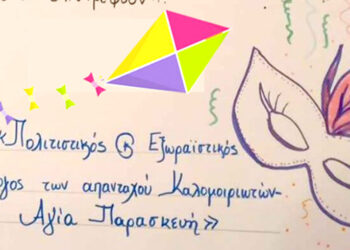 «Πολιτιστικός & Εξωραϊστικός
λογος των απανταχού Καλομοιριωτών-
Αγία Παρασκευή»